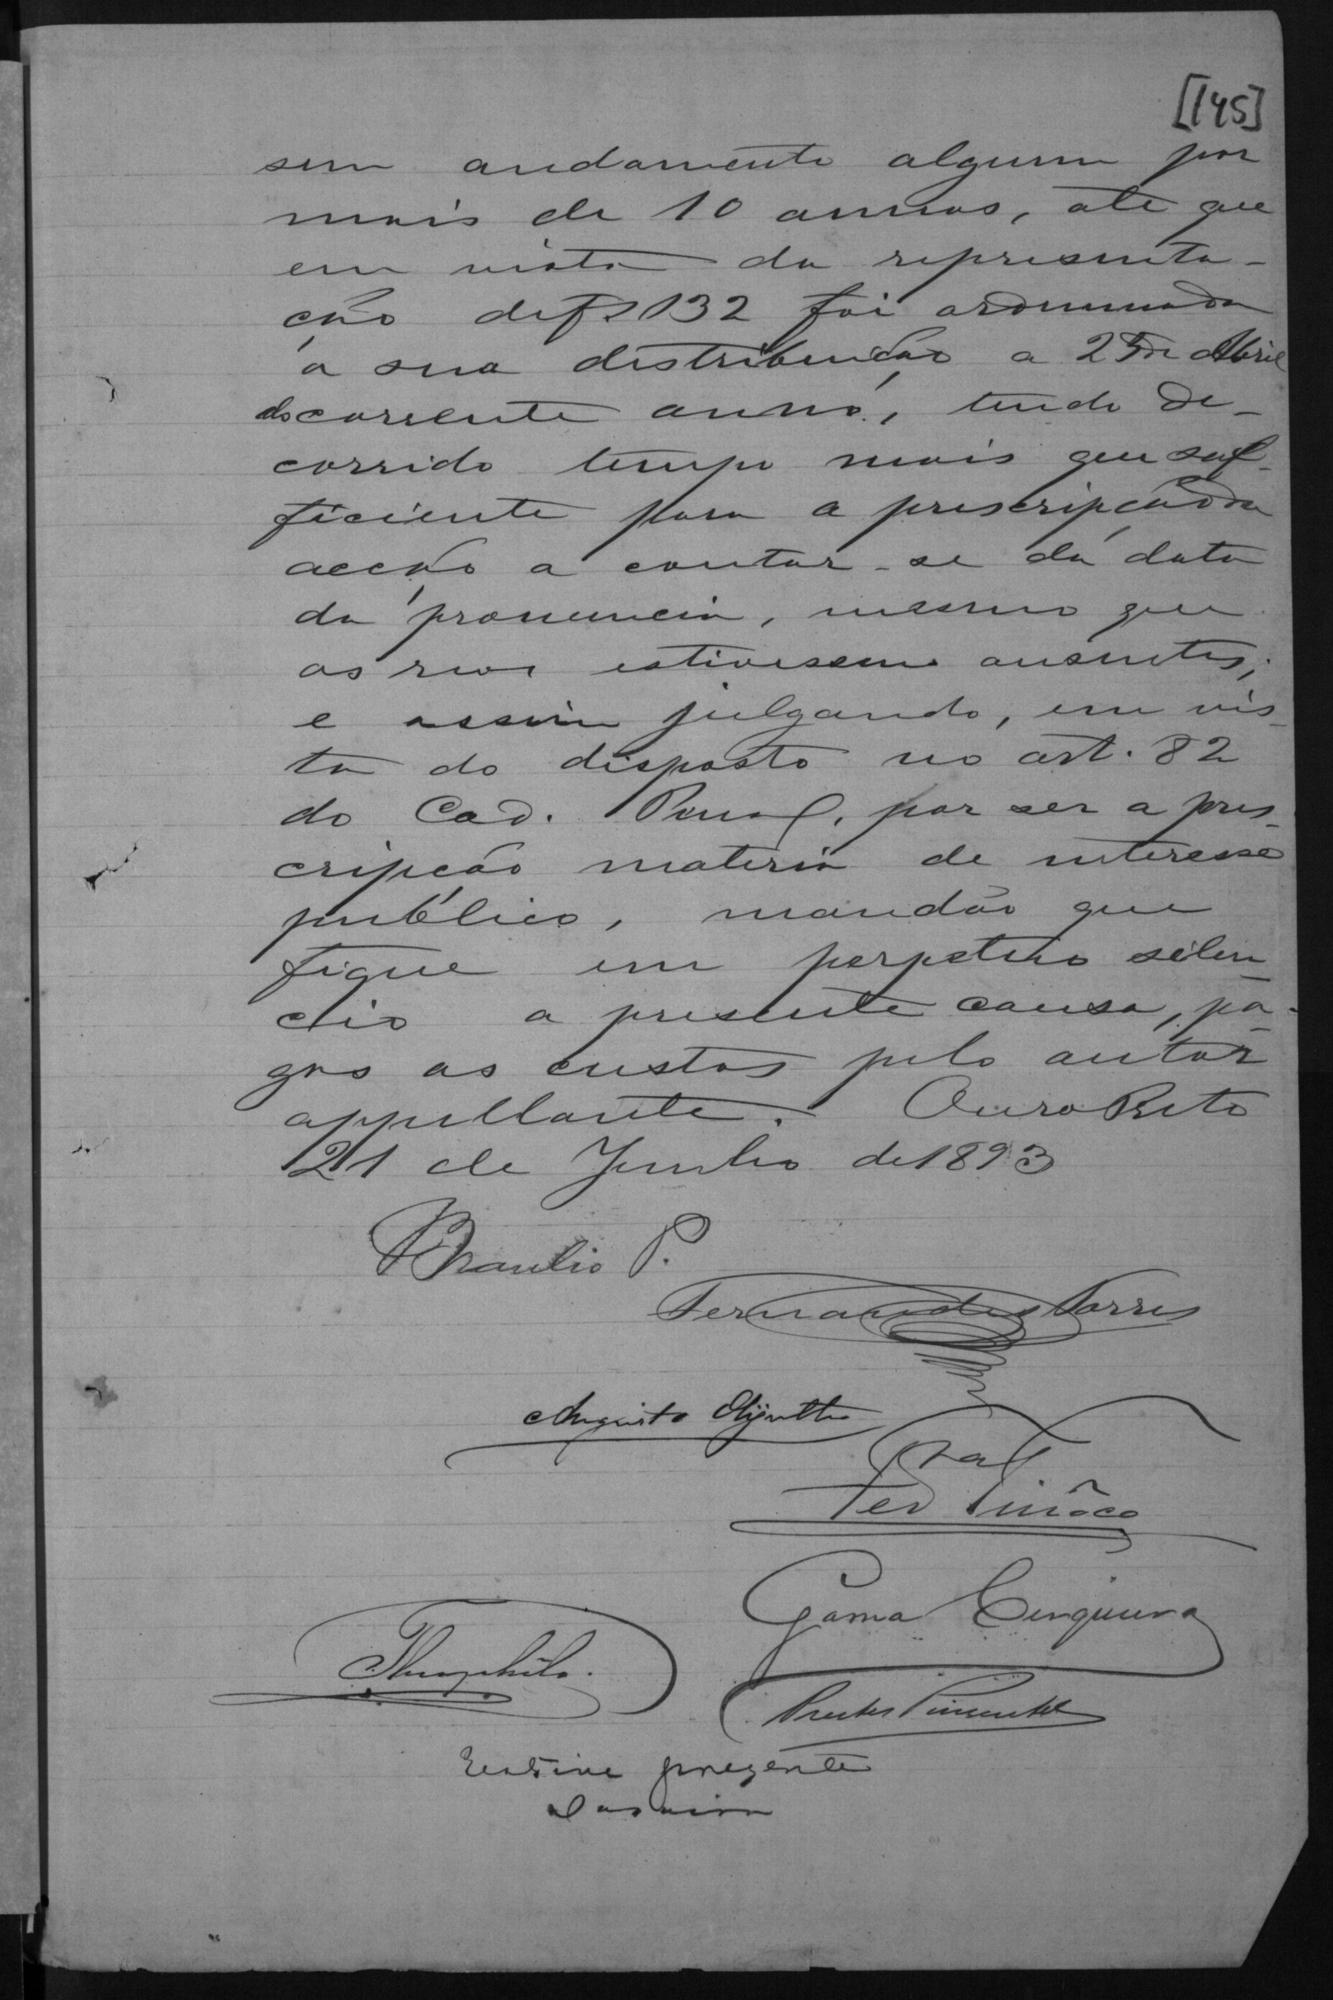 [145]
sem andamento algum por
mais de 10 annos, até que
em vista da representa-
ção de fs 132 foi ordenada
a sua distribuição a 25 de Abril
do corrente anno, tendo de-
corrido tempo mais que suf-
ficiente para a prescripção da
acção a contar-se da data
da pronuncia, mesmo que
os reos estivessem ausentes;
e assim julgando, em vis-
ta do disposto no art. 82
do Cod. Penal, por ser a pres-
cripção materia de interesse
publico, mandão que
fique em perpetuo silen-
cio a presente causa, pa-
gas as custas pelo autor
appellante. Ouro Preto
21 de Junho de 1893
Braulio P.
Fernandes Torres
Augusto
Tinôco
Gama Cerqueira
Theophilo.
Prestes Pimentel
Estive presente